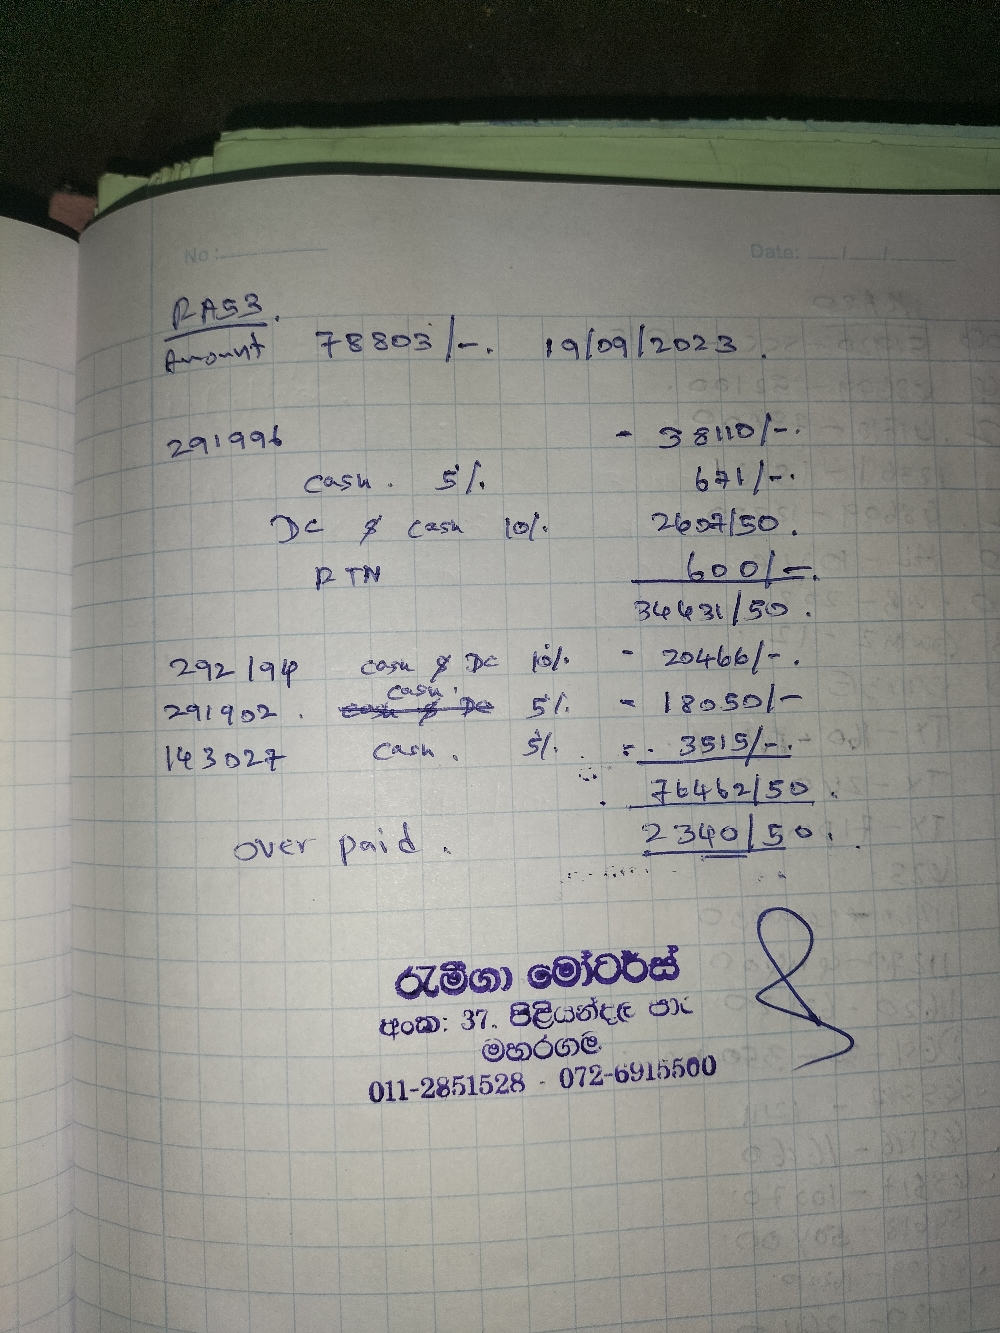 No : Date: / /
RAS3.
Amount 78803/-. 19/09/2023.
291996 - 38110/-.
cash. 5%. 671/-.
DC & cash 10%. 2607/50.
RTN 600/-.
34431/50.
292194 cash & DC 10%. - 20466/-.
cash.
291902. cash & DC 5%. - 18050/-
143027 cash. 5%. - 3515/-.
76462/50.
over paid. 2340/50.
රැමීගා මෝටර්ස්
අංක: 37. පිළියන්දල පාර
මහරගම
011-2851528 - 072-6915500